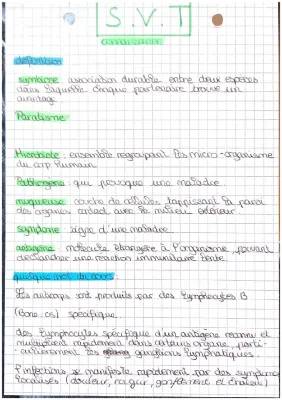 S.V.T
définition
symbiose : association durable entre deux espèces
dans laquelle chaque partenaire trouve un
avantage
Paratisme
Microbiote : ensemble regroupant les micro-organisme
du corp humain
Pathogène : qui provoque une maladie.
muqueuse : couche de cellules tappissant la paroi
des organes contact avec le milieu extérieur.
symptome : signe d'une maladie.
antigène : molécule étrangère à l'organisme, pouvant
déclencher une réaction immunitaire lente.
quelque mot du cours :
Les anticorps sont produits par des lymphocytes B
(Bone os) spécifique.
des lymphocytes spécifique d'un antigène reconnu et
multiplient rapidement dans certains organe, parti-
culièrement les ganglions lymphatiques.
l'infections se manifeste rapidement par des symptome
localisés (douleur, rougeur, gonflement et chaleur)